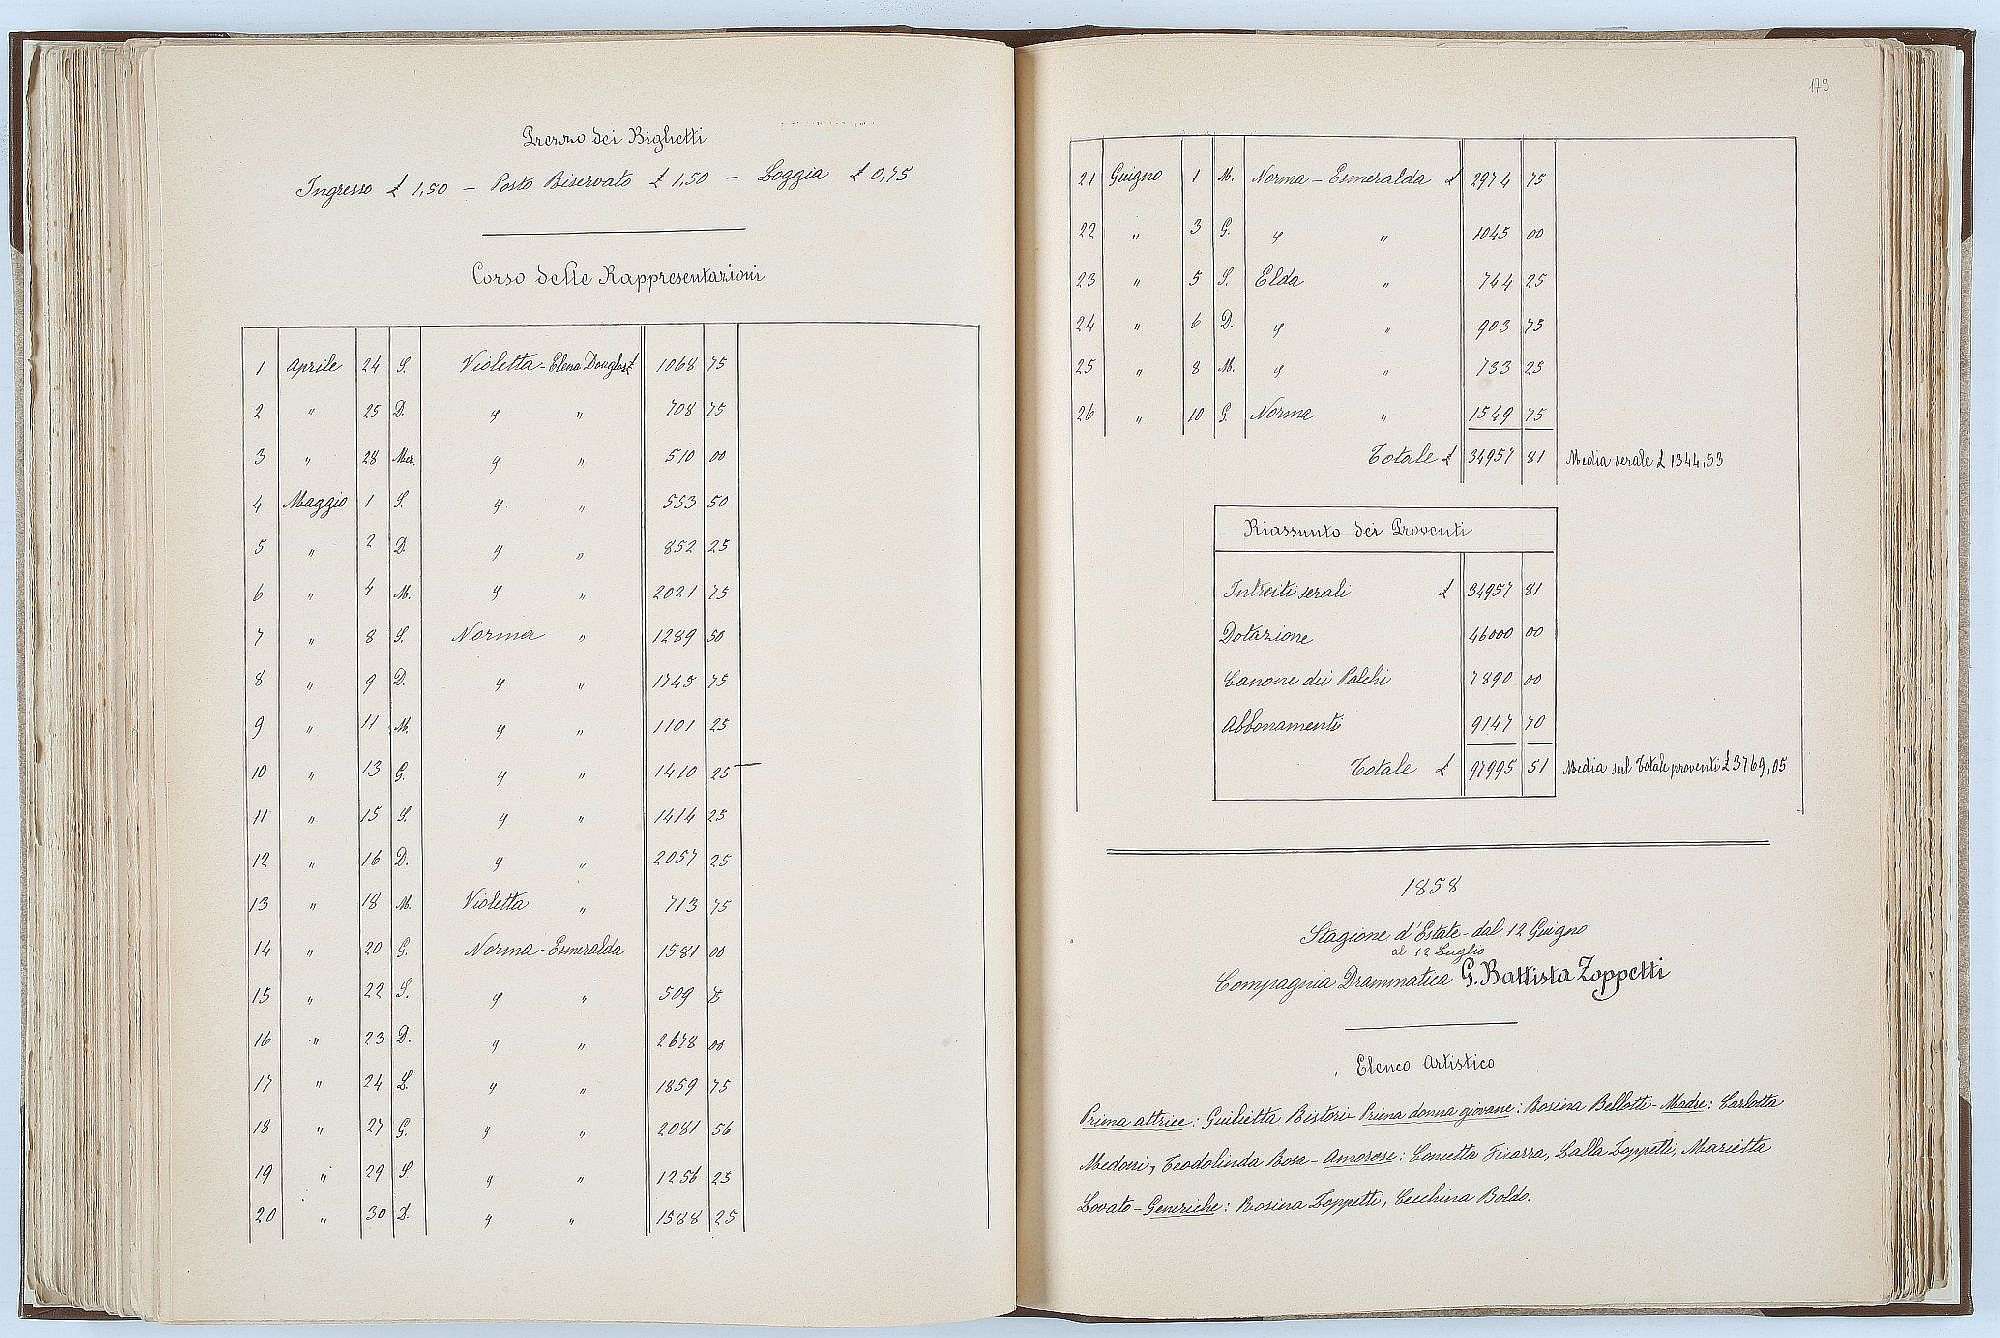 Prezzo dei Biglietti
Ingresso £ 1,50 – Posto Riservato £ 1,50 – Loggia £ 0,75
Corso delle Rappresentazioni
1 Aprile 24 S. Violetta - Elena Douglas £ 1068 75
2 " 25 D. " " 708 75
3 " 28 Mer. " " 510 00
4 Maggio 1 S. " " 553 50
5 " 2 D. " " 852 25
6 " 4 M. " " 2021 75
7 " 8 S. Norma " 1289 50
8 " 9 D. " " 1745 75
9 " 11 M. " " 1101 25
10 " 13 G. " " 1410 25
11 " 15 S. " " 1414 25
12 " 16 D. " " 2057 25
13 " 18 M. Violetta " 713 75
14 " 20 G. Norma - Esmeralda 1581 00
15 " 22 S. " " 509
16 " 23 D. " " 2678 00
17 " 24 L. " " 1859 75
18 " 27 G. " " 2081 56
19 " 29 S " " 1256 25
20 " 30 D. " " 1588 25
179
21 Guigno 1 M. Norma - Esmeralda £ 2974 75
22 " 3 G. " " 1045 00
23 " 5 S. Elda " 744 25
24 " 6 D. " " 903 75
25 " 8 M. " " 733 25
26 " 10 G. Norma " 1549 75
Totale £ 34957 81 Media serale £ 1344,53
Riassunto dei Proventi
Introiti serali £ 34957 81
Dotazione 46000 00
Canone dei Palchi 7890 00
Abbonamenti 9147 70
Totale £ 97995 51 Media sul Totale proventi £ 3769,05
1858
Stagione d'Estate - dal 12 Guigno
al 12 Luglio
Compagnia Drammatica G. Battista Zoppetti
Elenco Artistico
Prima attrice: Guilietta Ristori - Prima donna giovane: Rosina Bellotti - Madre: Carlotta
Medoni, Teodolinda Rosa - Amorose: Cometta Ficarra, Lalla Zoppetti, Marietta
Lovato - Generiche: Rosina Zoppetti, Cecchina Boldo.